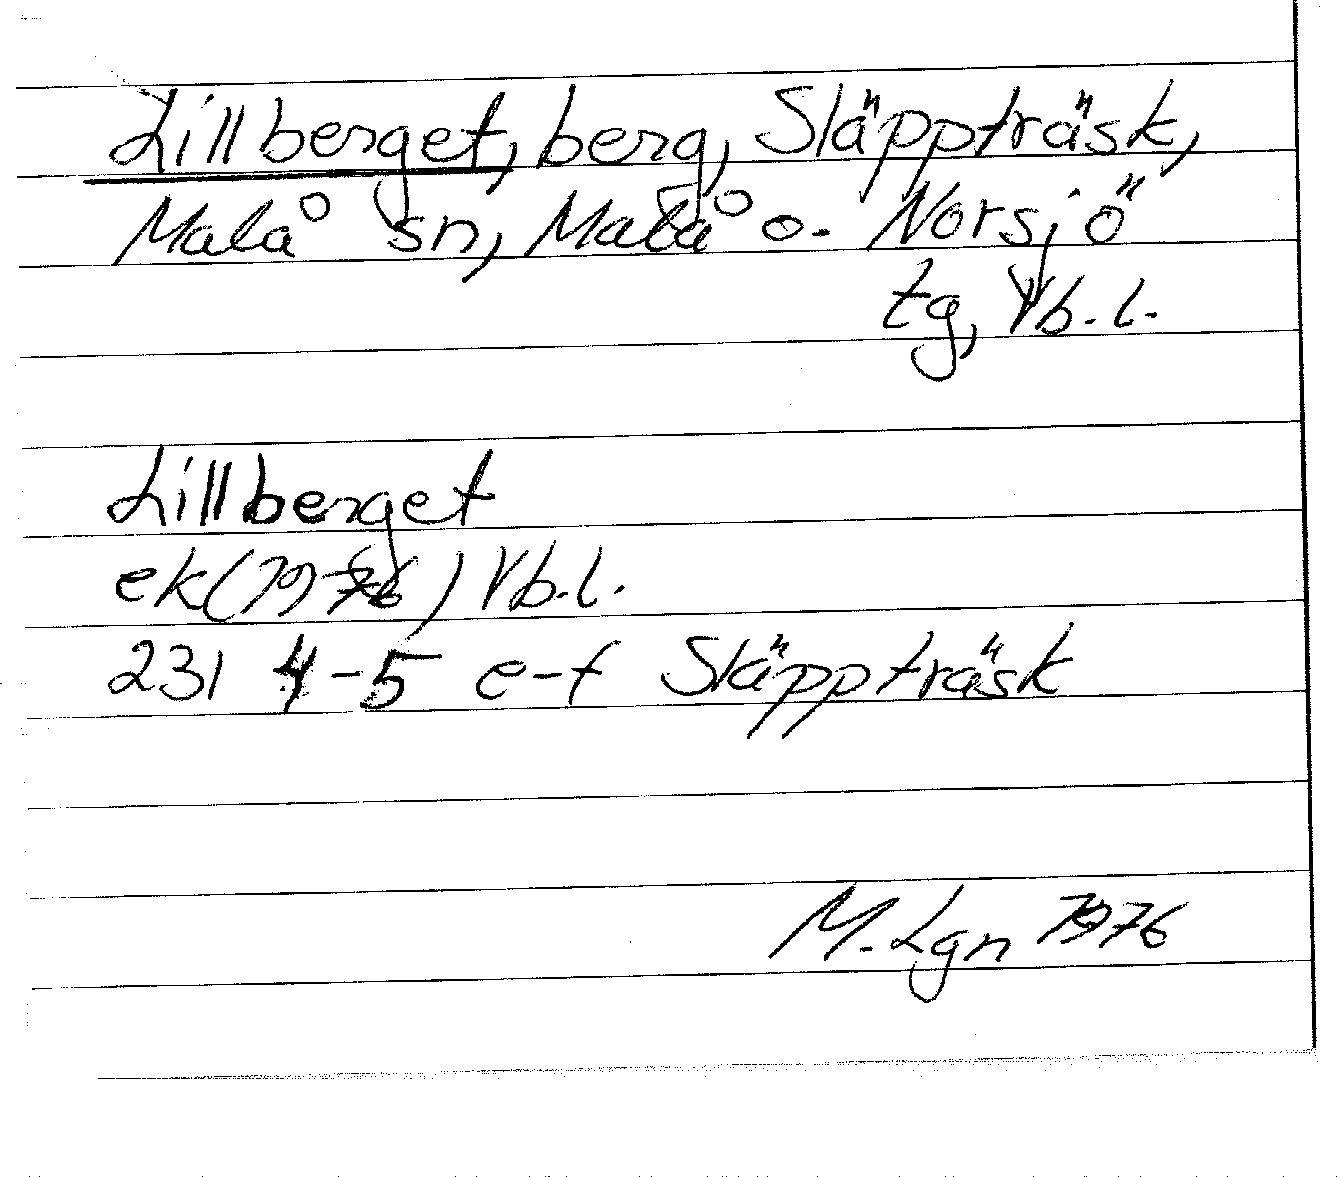 Lillberget, berg, Släppträsk,
Malå sn, Malå o. Norsjö
tg, Vb. l.
Lillberget
ek (1976) Vb. l.
231 4-5 e-f Släppträsk
M. Lgn 1976